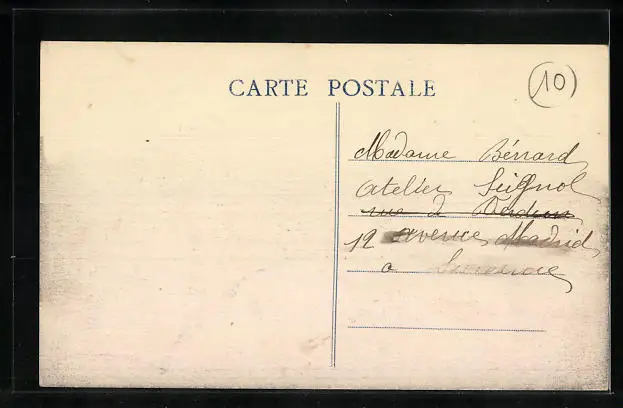 CARTE POSTALE
10
Madame Bénard
atelier Seignol
rue de Verdun
12 avenue Madrid
a